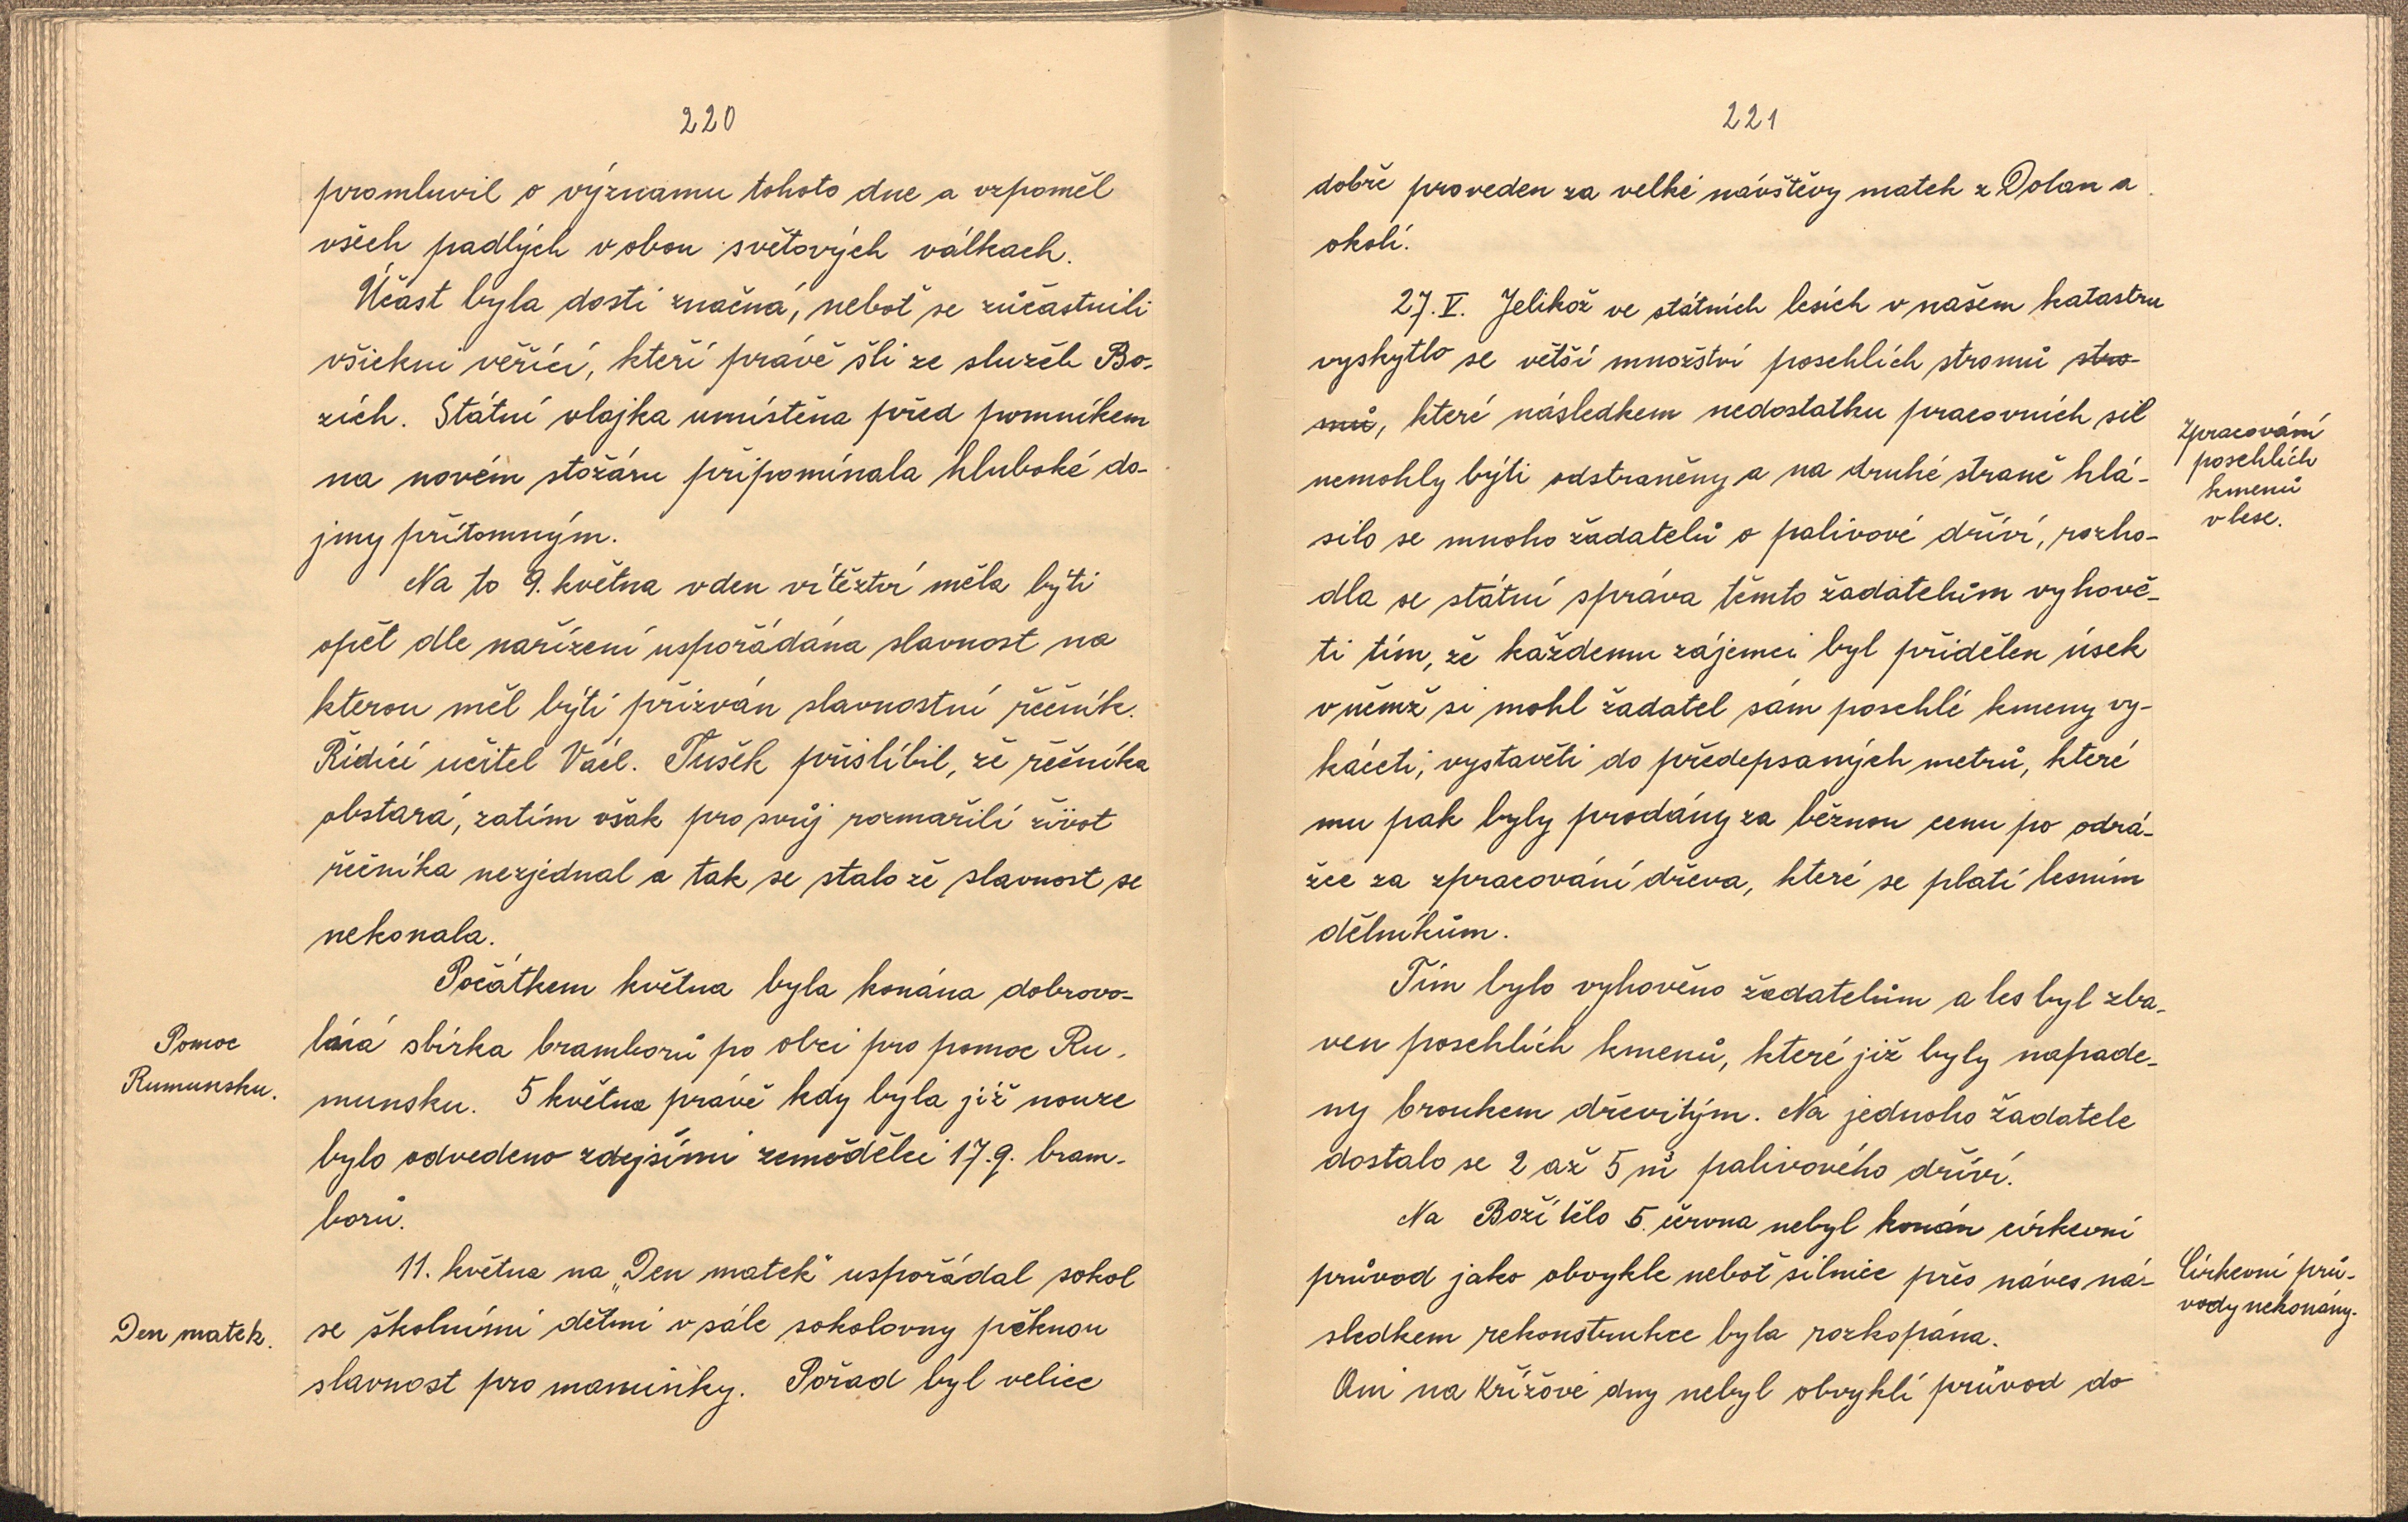 220
promluvil o významu tohoto dne a vzpoměl
všech padlých v obou světových válkach.
Účast byla dosti značná, neboť se zůčastnili
všickni věřící, kteří právě šli ze služeb Bo-
žích. Státní vlajka umístěna před pomníkem
na novém stožáru připomínala hluboké do-
jmy přítomným.
Na to 9. května v den vítěztví měla býti
opět dle nařízení uspořádána slavnost na
kterou měl býti přizván slavnostní řečník.
Řídící učitel Václ. Tušek přislíbil, že řečníka
obstará, zatím však pro svůj rozmařilí život
řečníka nezjednal a tak se stalo že slavnost se
nekonala.
Počátkem května byla konána dobrovo-
Pomoc
Rumunsku.
lná sbírka bramborů po obci pro pomoc Ru-
munsku. 5 května právě kdy byla již nouze
bylo odvedeno zdejšími zemědělci 17.q. bram-
borů.
11. května na „Den matek" uspořádal sokol
Den matek.
se školními dětmi v sále sokolovny pěknou
slavnost pro maminky. Pořad byl velice
221
dobře proveden za velké návštěvy matek z Dolan a
okolí.
27. V. Jelikož ve státních lesích v našem katastru
vyskytlo se větší množství poschlích stromů stro-
mů, které následkem nedostatku pracovních sil
Zpracování
poschlích
kmenů
v lese.
nemohly býti odstraněny a na druhé straně hlá-
silo se mnoho žadatelů o palivové dříví, rozho-
dla se státní správa těmto žadatelům vyhově-
ti tím, že každemu zájemci byl přidělen úsek
v němž si mohl žadatel sám poschlé kmeny vy-
káceti, vystavěti do předepsaných metrů, které
mu pak byly prodány za běžnou cenu po odrá-
žce za zpracování dřeva, které se platí lesním
dělníkům.
Tím bylo vyhověno žadatelům a les byl zba-
ven poschlích kmenů, které již byly napade-
ny broukem dřevitým. Na jednoho žadatele
dostalo se 2 až 5 m³ palivového dříví.
Na Boží tělo 5. června nebyl konán církevní
průvod jako obvykle neboť silnice přes náves ná-
Církevní prů-
vody nekonány.
sledkem rekonstrukce byla rozkopána.
Ani na Křížové dny nebyl obvyklí průvod do